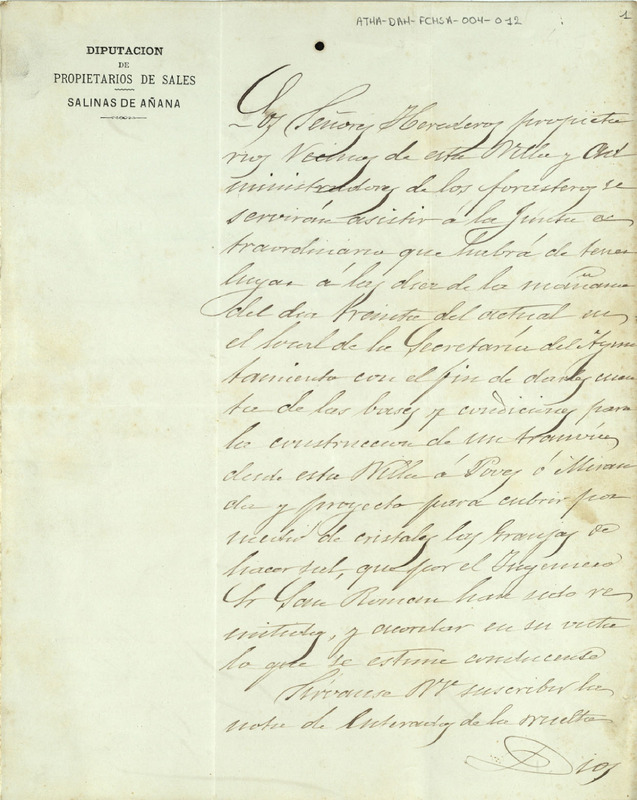 ATHA-DAH-FCHSA-004-012
1
DIPUTACION
DE
PROPIETARIOS DE SALES
SALINAS DE AÑANA
Los Señores Herederos propieta
rios Vecinos de esta Villa y Ad
ministradores de los forasteros se
servirán asistir á la Junta es
traordinaria que habrá de tener
lugar á las diez de la mañana
del dia treinta del actual en
el local de la Secretaría del Ayun
tamiento con el fin de darles cuen
ta de las bases y condiciones para
la construccion de un tranvía
desde esta Villa á Poves ó Miran
da y proyecto para cubrir por
medio de cristales las granjas de
hacer sal, que por el Ingeniero
Sr San Roman han sido re
mitidas, y acordar en su vista
lo que se estime conducente
Sírvanse VV. suscribir la
nota de Enterados de la vuelta
Dios